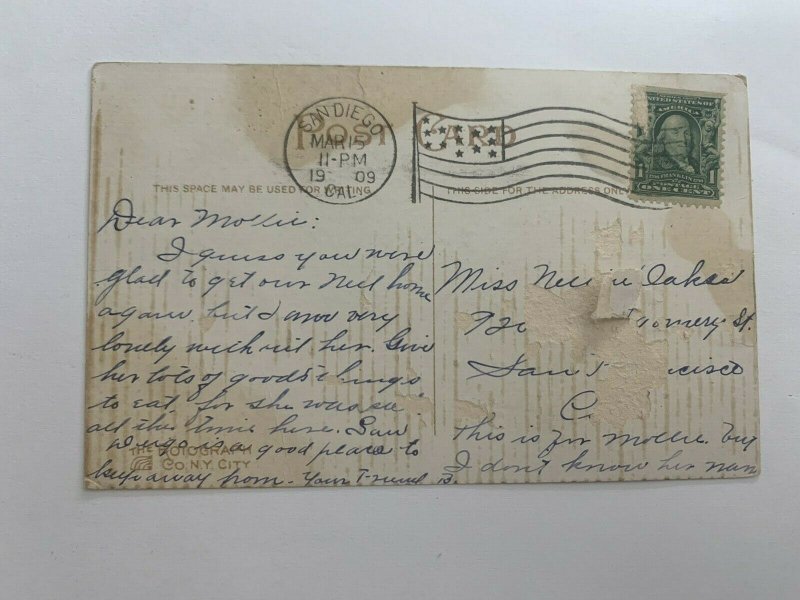 POST CARD
SAN DIEGO
MAR 15
11-PM
19 09
CAL.
UNITED STATES OF AMERICA
1 1
POSTAGE
ONE CENT
THIS SPACE MAY BE USED FOR WRITING.
THIS SIDE FOR THE ADDRESS ONLY
Dear Mollie:
I guess you were
glad to get our Nell home
again, but I am very
lonely without her. Give
her lots of goods things
to eat, for she was
all the time here. San
Diego is a good place to
keep away from. Your Friend
THE ROTOGRAPH
CO. N.Y. CITY
Miss Nellie Oakes
St.
San cisco
C
This is for Mollie. but
I don't know her nam